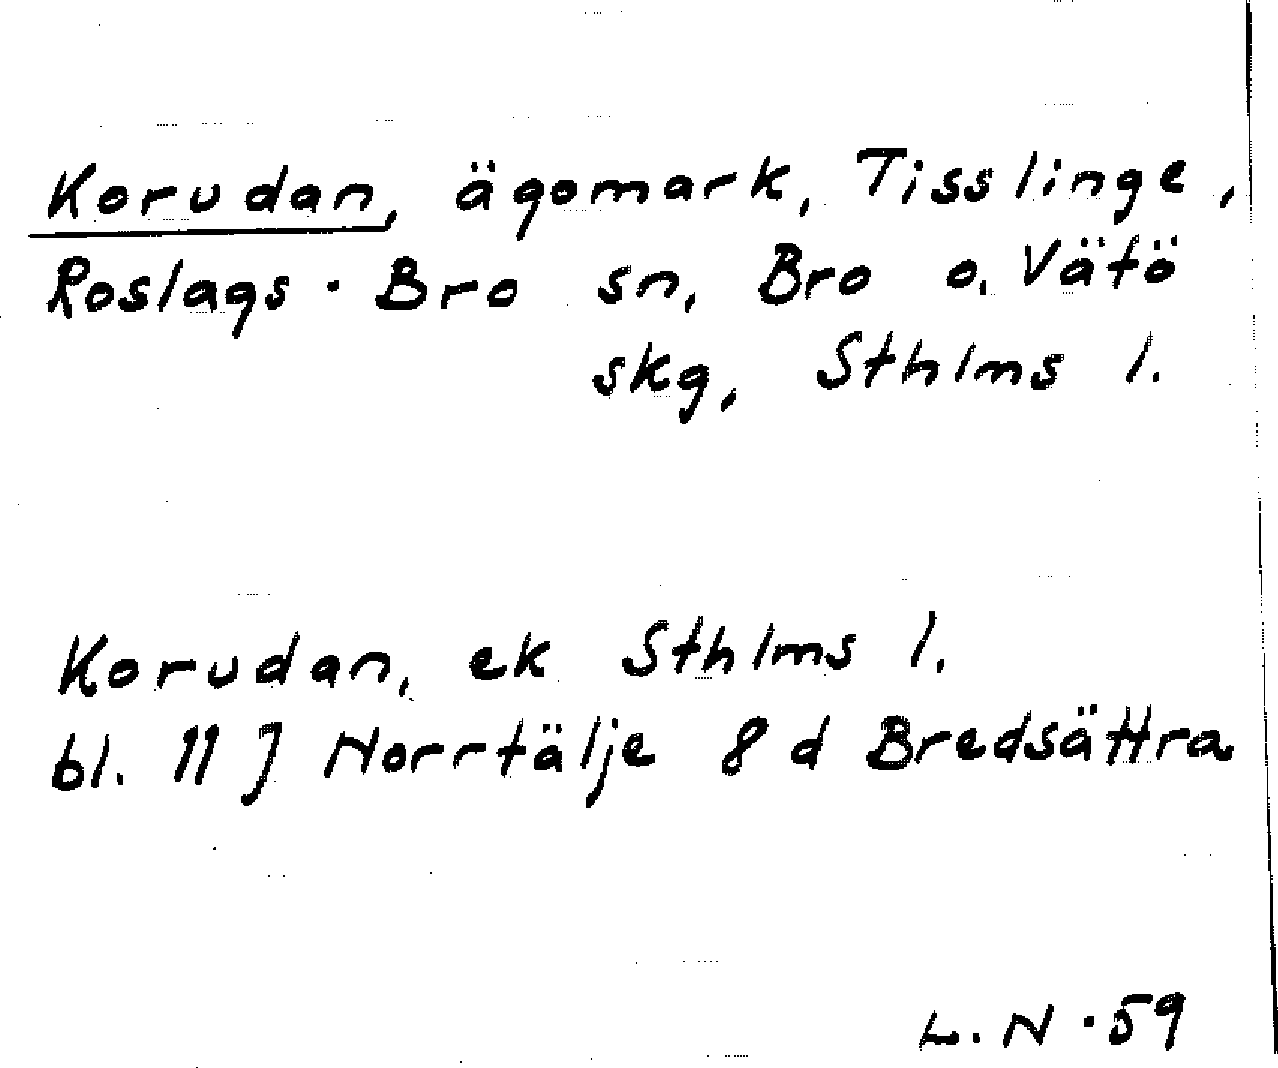 Korudan, ägomark, Tisslinge,
Roslags-Bro sn, Bro o. Vätö
skg, Sthlms l.
Korudan, ek Sthlms l.
bl. 11 J Norrtälje 8 d Bredsättra
L. N -59